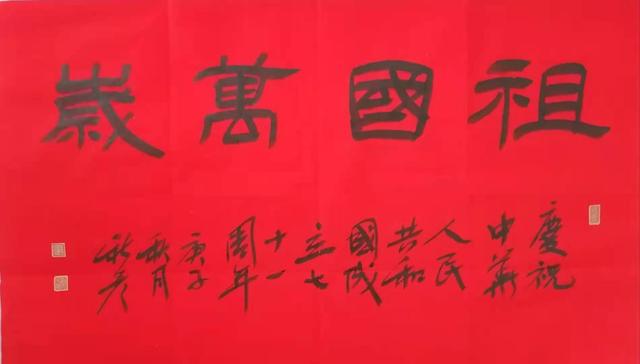 祖國萬歲
慶祝
中華
人民
共和
國成
立七
十一
周年
庚子
秋月